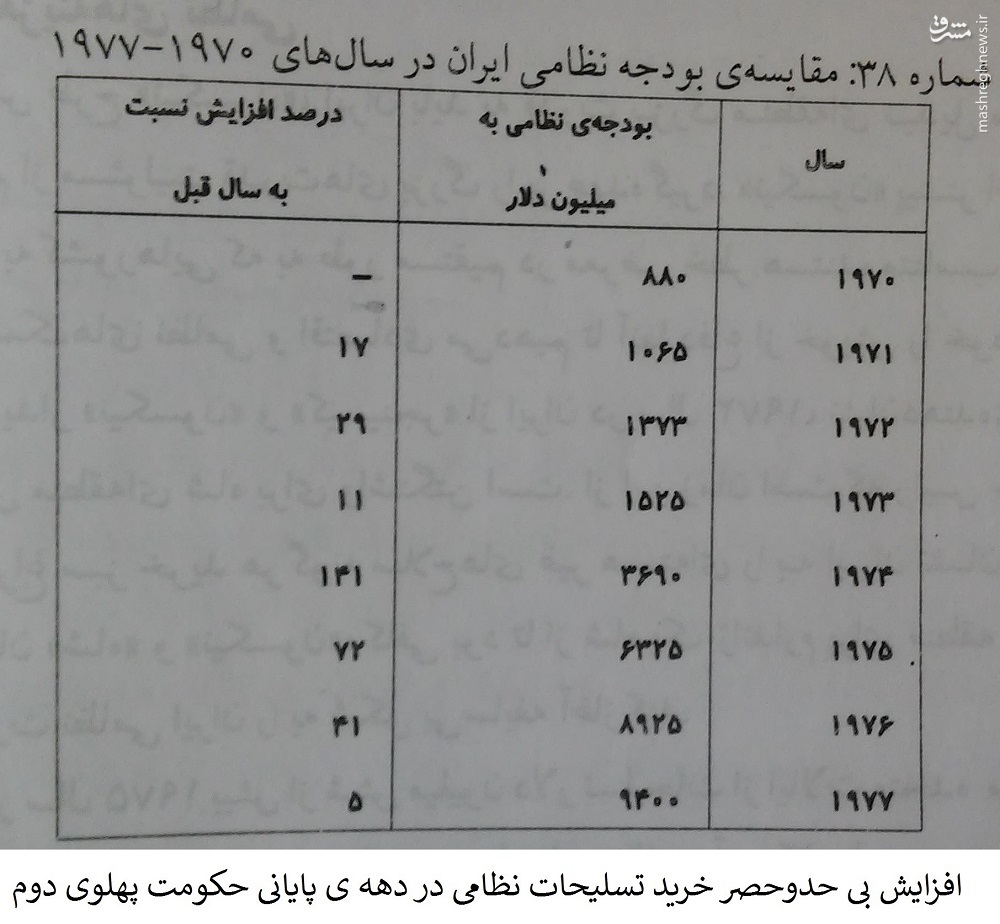 مشرق
mashreghnews.ir
شماره ۳۸: مقایسه‌ی بودجه نظامی ایران در سال‌های ۱۹۷۰-۱۹۷۷
سال بودجه‌ی نظامی به میلیون دلار درصد افزایش نسبت به سال قبل
۱۹۷۰ ۸۸۰ –
۱۹۷۱ ۱۰۶۵ ۱۷
۱۹۷۲ ۱۳۷۳ ۲۹
۱۹۷۳ ۱۵۲۵ ۱۱
۱۹۷۴ ۳۶۹۰ ۱۴۱
۱۹۷۵ ۶۳۲۵ ۷۲
۱۹۷۶ ۸۹۲۵ ۴۱
۱۹۷۷ ۹۴۰۰ ۵
افزایش بی حدوحصر خرید تسلیحات نظامی در دهه ی پایانی حکومت پهلوی دوم